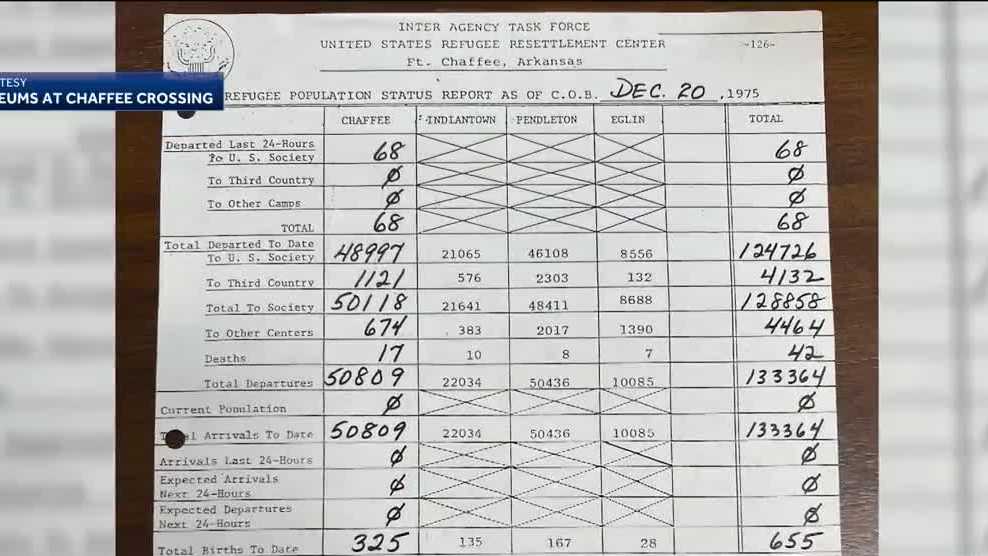 INTER AGENCY TASK FORCE
UNITED STATES REFUGEE RESETTLEMENT CENTER -126-
Ft. Chaffee, Arkansas
TESY
EUMS AT CHAFFEE CROSSING
REFUGEE POPULATION STATUS REPORT AS OF C.O.B. DEC. 20, 1975
CHAFFEE INDIANTOWN PENDLETON EGLIN TOTAL
Departed Last 24-Hours
To U. S. Society 68 68
To Third Country Ø Ø
To Other Camps Ø Ø
TOTAL 68 68
Total Departed To Date
To U. S. Society 48997 21065 46108 8556 124726
To Third Country 1121 576 2303 132 4132
Total To Society 50118 21641 48411 8688 128858
To Other Centers 674 383 2017 1390 4464
Deaths 17 10 8 7 42
Total Departures 50809 22034 50436 10085 133364
Current Population Ø Ø
T al Arrivals To Date 50809 22034 50436 10085 133364
Arrivals Last 24-Hours Ø Ø
Expected Arrivals
Next 24-Hours Ø Ø
Expected Departures
Next 24-Hours Ø Ø
Total Births To Date 325 135 167 28 655